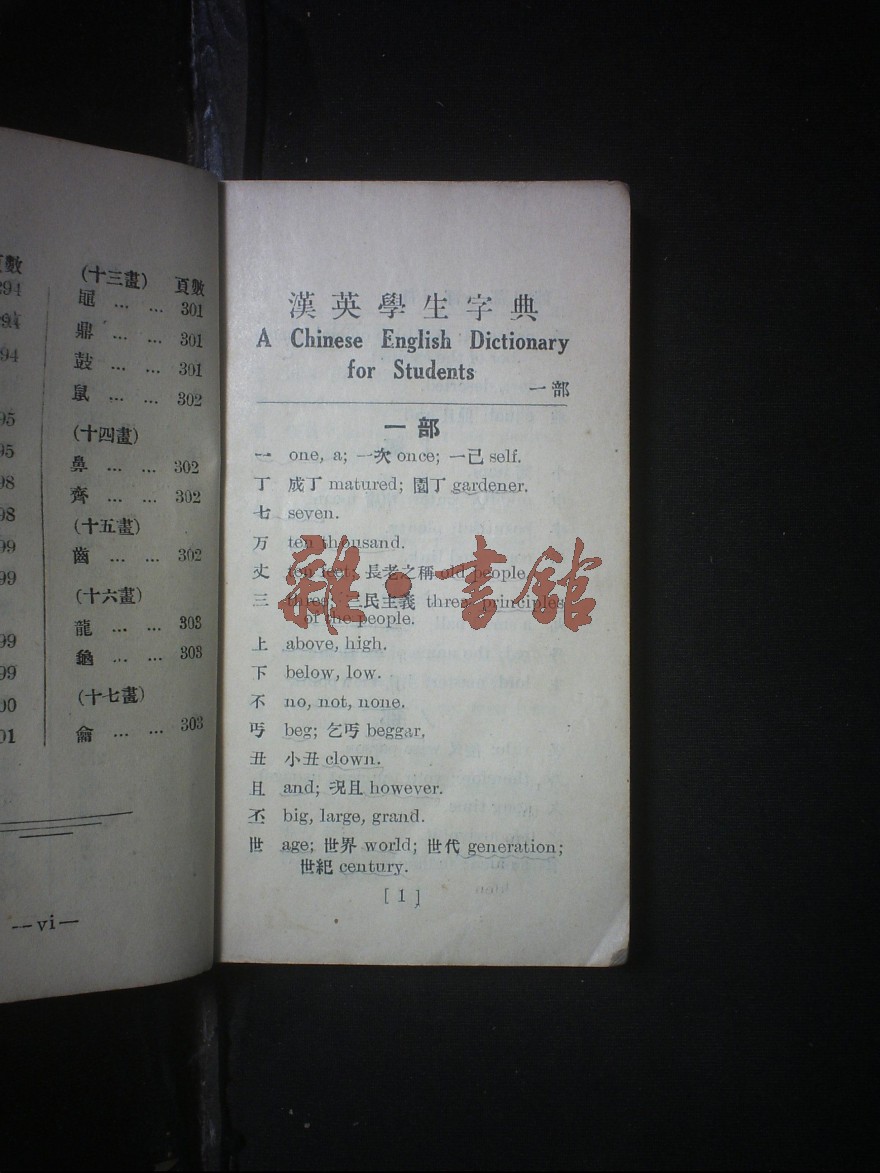 頁數
294
294
294
295
295
298
298
299
299
299
299
300
301
(十三畫) 頁數
黽 … … 301
鼎 … … 301
鼓 … … 301
鼠 … … 302
(十四畫)
鼻 … … 302
齊 … … 302
(十五畫)
齒 … … 302
(十六畫)
龍 … … 303
龜 … … 303
(十七畫)
龠 … … 303
—vi—
漢英學生字典
A Chinese English Dictionary
for Students
一部
一部
一 one, a; 一次 once; 一己 self.
丁 成丁 matured; 園丁 gardener.
七 seven.
万 ten thousand.
丈 ten feet; 長老之稱 old people.
三 three; 三民主義 three principles
of the people.
上 above, high.
下 below, low.
不 no, not, none.
丐 beg; 乞丐 beggar,
丑 小丑 clown.
且 and; 况且 however.
丕 big, large, grand.
世 age; 世界 world; 世代 generation;
世紀 century.
[ 1 ]
雜·書館